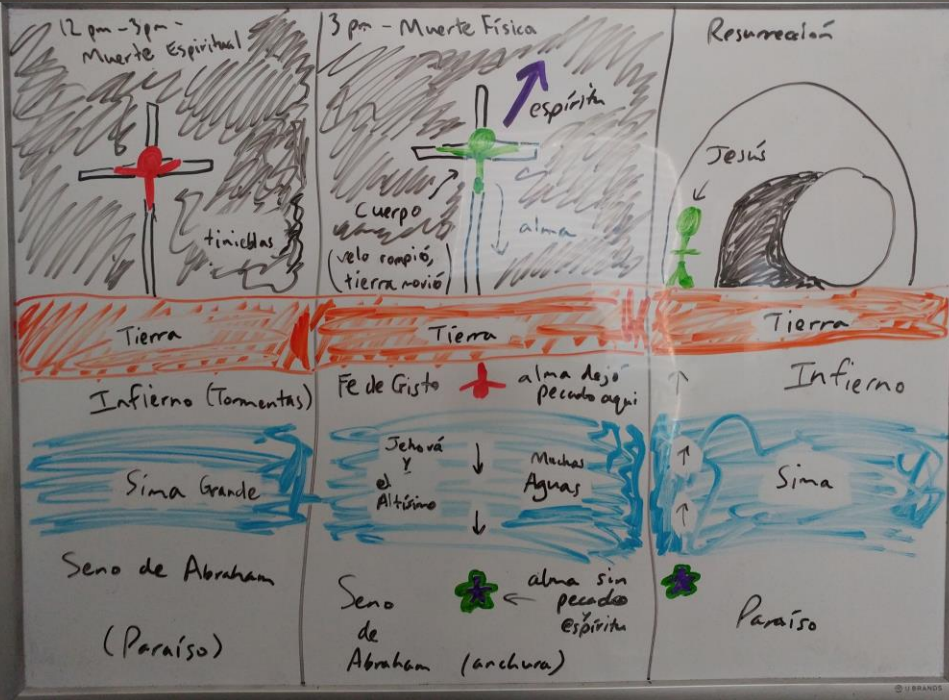 12 pm - 3 pm -
Muerte Espiritual
tinieblas
Tierra
Infierno (Tormentas)
Sima Grande
Seno de Abraham
(Paraíso)
3 pm - Muerte Física
espíritu
Cuerpo
alma
(velo rompió,
tierra movió)
Tierra
Fe de Cristo
alma dejó
pecado aquí
Jehová
y
el
Altísimo
Muchas
Aguas
Seno
de
Abraham (anchura)
alma sin
pecado
y
espíritu
Resurrección
Jesús
Tierra
Infierno
Sima
Paraíso
U BRANDS